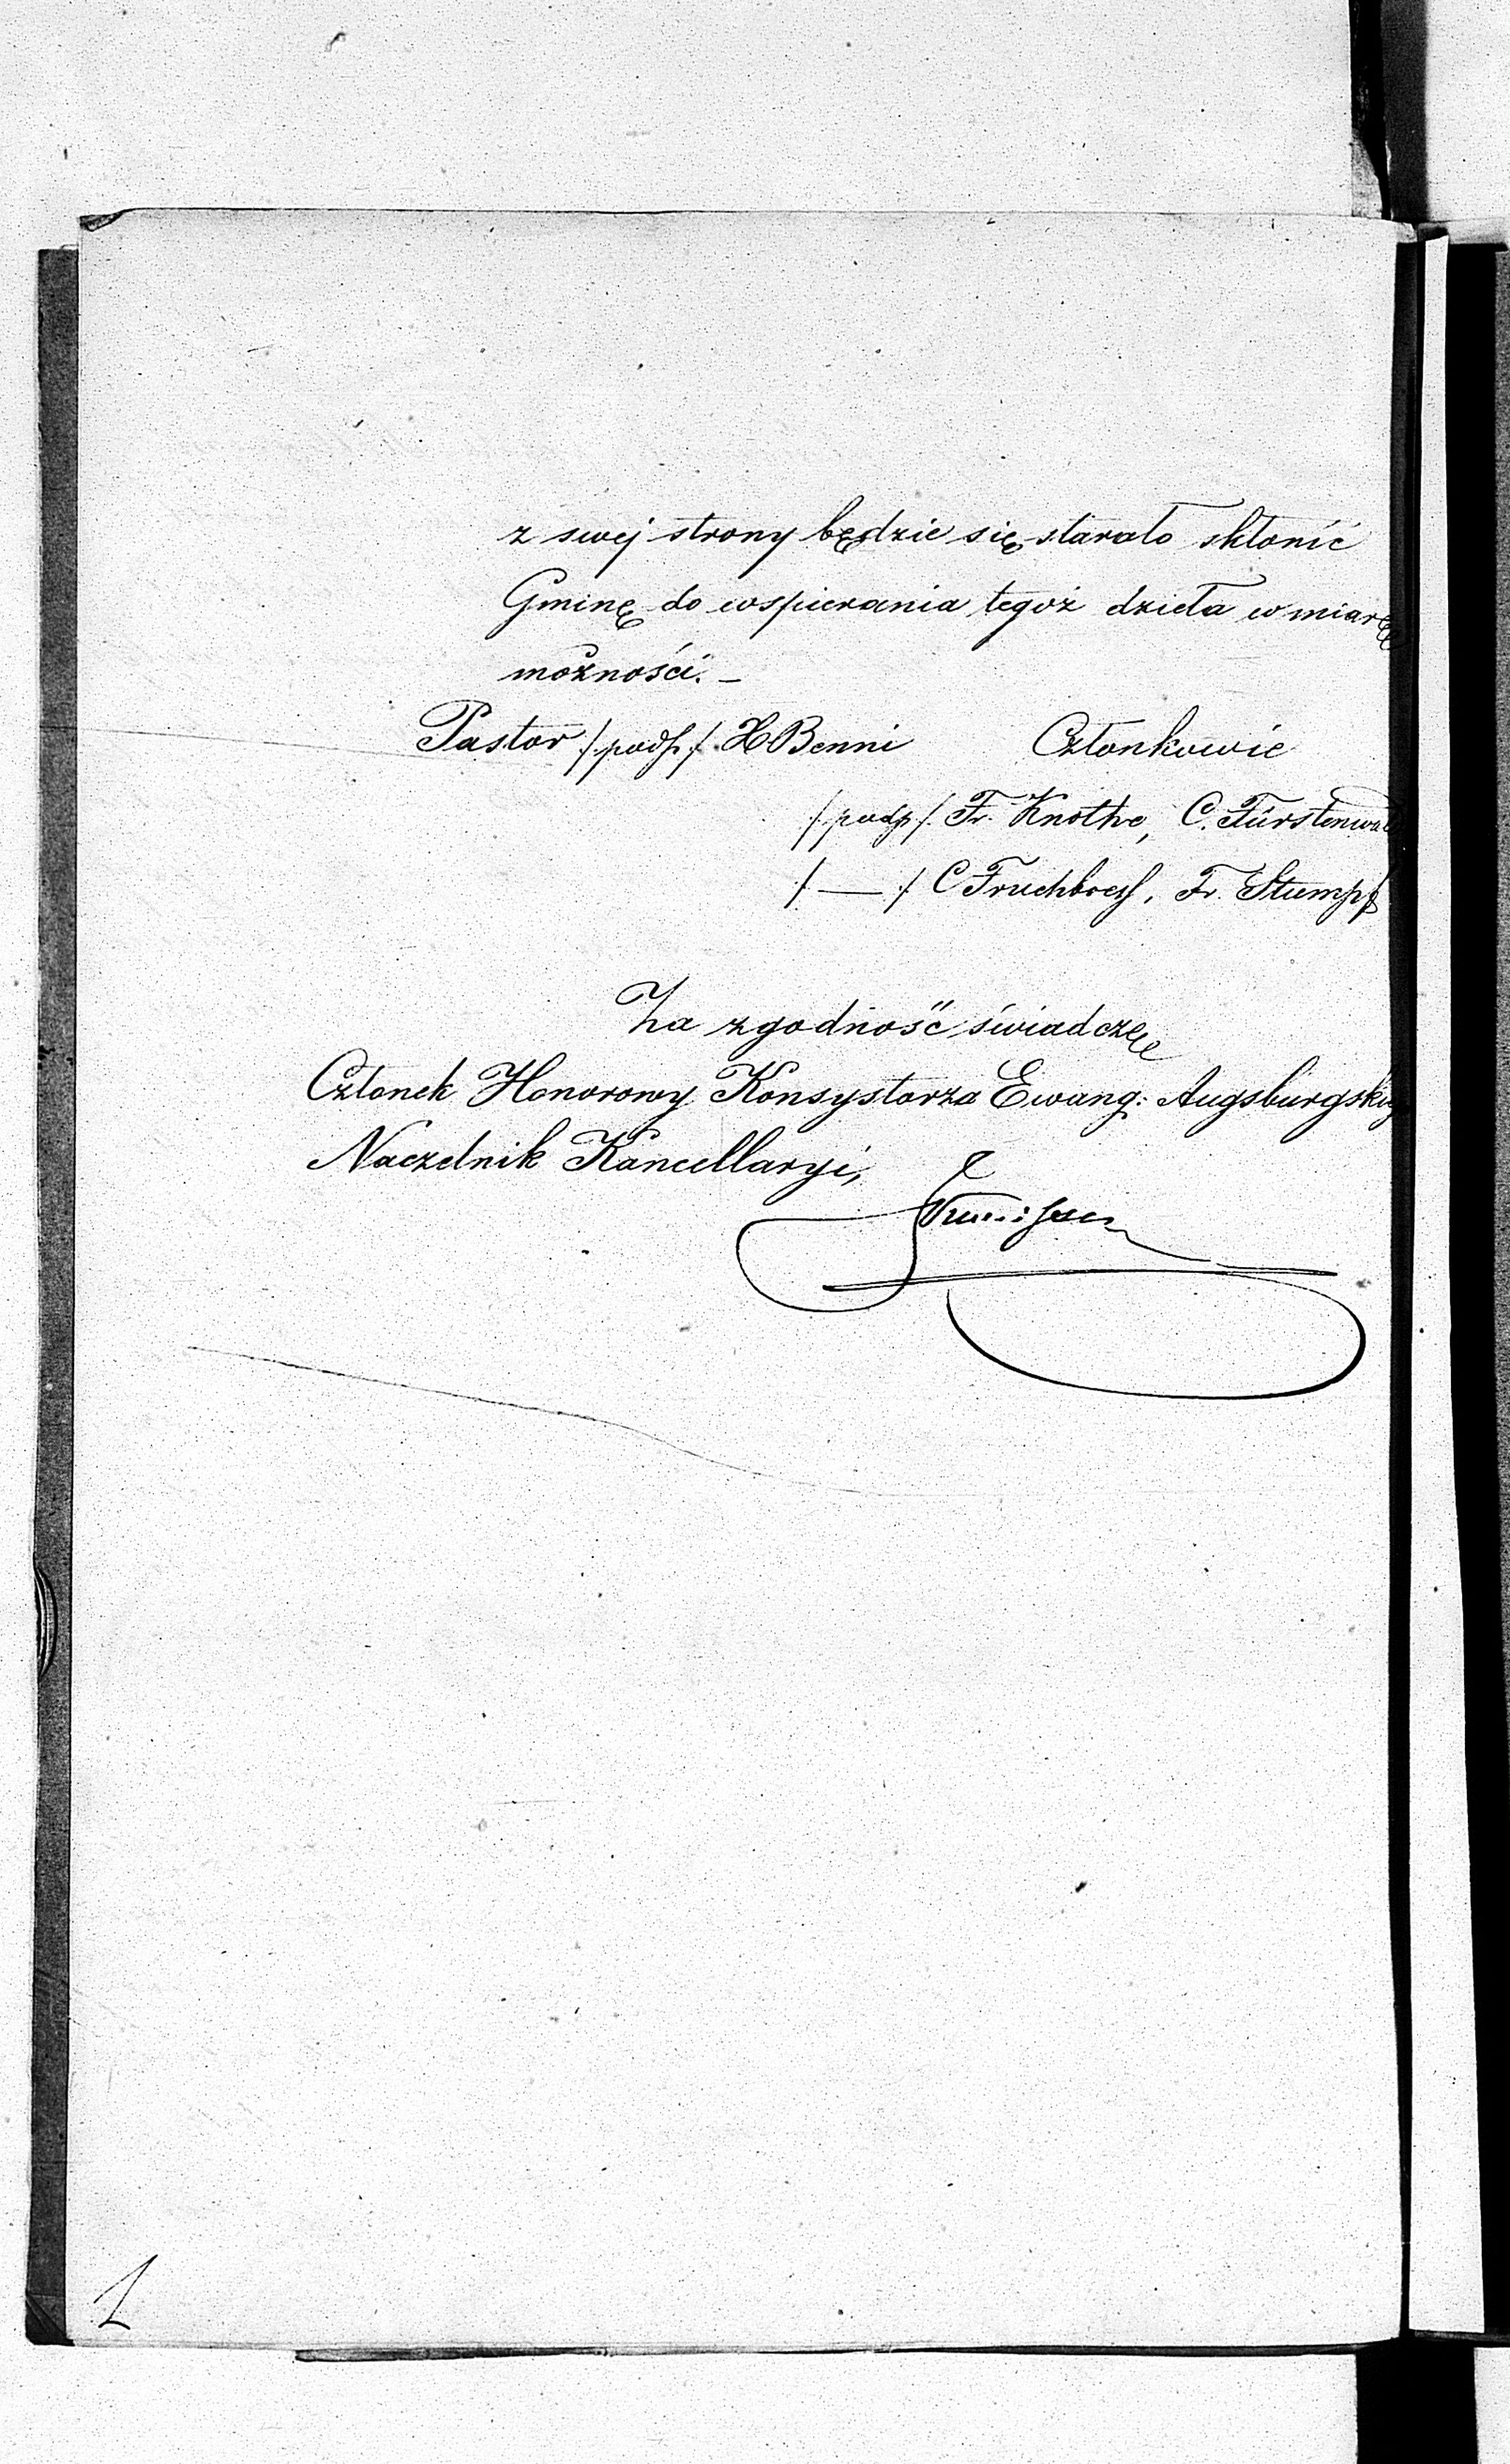 z swej strony będzie się starało skłonić
Gminę do wspierania tegoż dzieła w miarę
możności. –
Pastor /:podp:/ H Benni Członkowie
/:podp:/ Fr. Knothe, C. Fürstenwal
/: — :/ C Fruchboesf, Fr. Stumpf
Za zgodność świadczę
Członek Honorowy Konsystorza Ewang: Augsburgskieg
Naczelnik Kancellaryi,
1